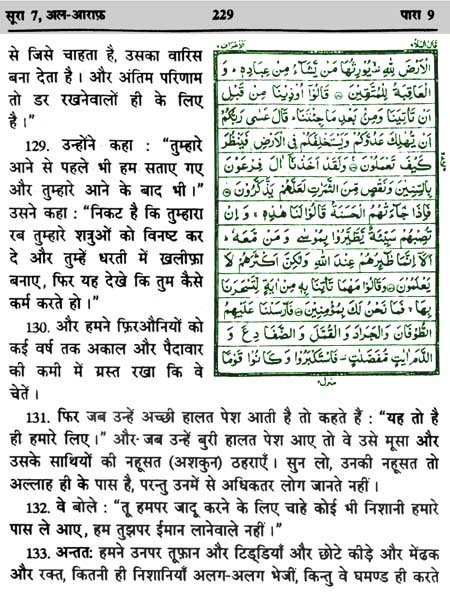 सूरा 7, अल-आराफ़ 229 पारा 9
से जिसे चाहता है, उसका वारिस
बना देता है। और अंतिम परिणाम
तो डर रखनेवालों ही के लिए
है।"
129. उन्होंने कहा : "तुम्हारे
आने से पहले भी हम सताए गए
और तुम्हारे आने के बाद भी।"
उसने कहा : "निकट है कि तुम्हारा
रब तुम्हारे शत्रुओं को विनष्ट कर
दे और तुम्हें धरती में ख़लीफ़ा
बनाए, फिर यह देखे कि तुम कैसे
कर्म करते हो।"
130. और हमने फ़िरऔनियों को
कई वर्ष तक अकाल और पैदावार
की कमी में ग्रस्त रखा कि वे
चेतें।
الْاَرْضَ لِلّٰهِ يُوْرِثُهَا مَنْ يَّشَآءُ مِنْ عِبَادِهٖ وَ
الْعَاقِبَةُ لِلْمُتَّقِيْنَ قَالُوْۤا اُوْذِيْنَا مِنْ قَبْلِ
اَنْ تَاْتِيَنَا وَمِنْۢ بَعْدِ مَا جِئْتَنَا قَالَ عَسٰى رَبُّكُمْ
اَنْ يُّهْلِكَ عَدُوَّكُمْ وَيَسْتَخْلِفَكُمْ فِى الْاَرْضِ فَيَنْظُرَ
كَيْفَ تَعْمَلُوْنَ وَلَقَدْ اَخَذْنَاۤ اٰلَ فِرْعَوْنَ
بِالسِّنِيْنَ وَنَقْصٍ مِّنَ الثَّمَرٰتِ لَعَلَّهُمْ يَذَّكَّرُوْنَ
فَاِذَا جَآءَتْهُمُ الْحَسَنَةُ قَالُوْا لَنَا هٰذِهٖ وَ اِنْ
تُصِبْهُمْ سَيِّئَةٌ يَّطَّيَّرُوْا بِمُوْسٰى وَ مَنْ مَّعَهٗ
اَلَاۤ اِنَّمَا طٰٓئِرُهُمْ عِنْدَ اللّٰهِ وَلٰكِنَّ اَكْثَرَهُمْ لَا
يَعْلَمُوْنَ وَقَالُوْا مَهْمَا تَاْتِنَا بِهٖ مِنْ اٰيَةٍ لِّتَسْحَرَنَا
بِهَا فَمَا نَحْنُ لَكَ بِمُؤْمِنِيْنَ فَاَرْسَلْنَا عَلَيْهِمُ
الطُّوْفَانَ وَالْجَرَادَ وَ الْقُمَّلَ وَ الضَّفَادِعَ وَ
الدَّمَ اٰيٰتٍ مُّفَصَّلٰتٍ فَاسْتَكْبَرُوْا وَ كَانُوْا قَوْمًا
131. फिर जब उन्हें अच्छी हालत पेश आती है तो कहते हैं : "यह तो है
ही हमारे लिए।" और जब उन्हें बुरी हालत पेश आए तो वे उसे मूसा और
उसके साथियों की नहूसत (अशकुन) ठहराएँ। सुन लो, उनकी नहूसत तो
अल्लाह ही के पास है, परन्तु उनमें से अधिकतर लोग जानते नहीं।
132. वे बोले : "तू हमपर जादू करने के लिए चाहे कोई भी निशानी हमारे
पास ले आए, हम तुझपर ईमान लानेवाले नहीं।"
133. अन्ततः हमने उनपर तूफ़ान और टिड्डियाँ और छोटे कीड़े और मेंढक
और रक्त, कितनी ही निशानियाँ अलग-अलग भेजीं, किन्तु वे घमण्ड ही करते